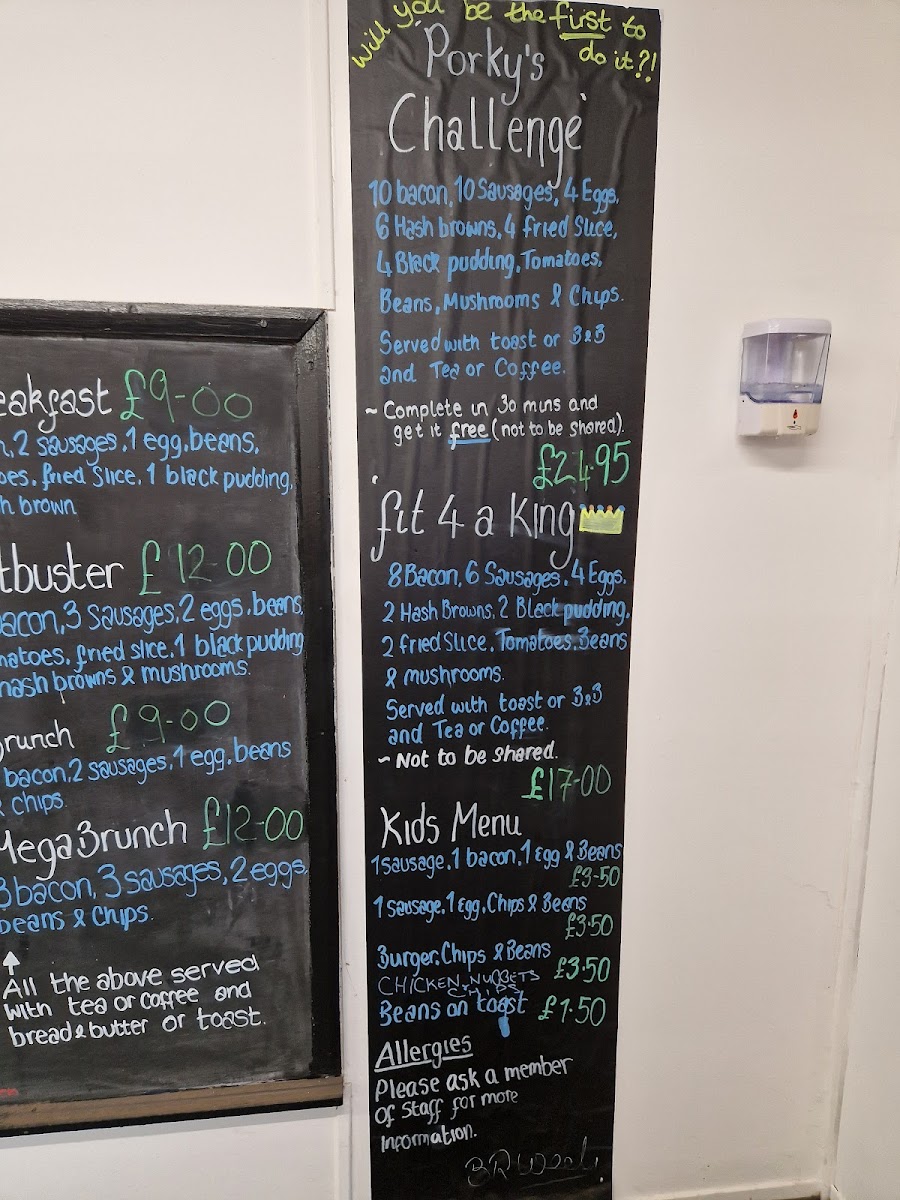 eakfast £9-00
n, 2 sausages, 1 egg, beans,
oes, fried slice, 1 black pudding,
h brown
tbuster £12-00
bacon, 3 sausages, 2 eggs, beans,
matoes, fried slice, 1 black pudding
hash browns & mushrooms.
Brunch £9-00
bacon, 2 sausages, 1 egg, beans
& chips.
MegaBrunch £12-00
3 bacon, 3 sausages, 2 eggs,
beans & chips.
All the above served
with tea or coffee and
bread & butter or toast.
Will you be the first to
do it?!
Porky's
Challenge
10 bacon, 10 Sausages, 4 Eggs,
6 Hash browns, 4 fried Slice,
4 Black pudding, Tomatoes,
Beans, Mushrooms & Chips.
Served with toast or B&B
and Tea or Coffee.
~ Complete in 30 mins and
get it free (not to be shared).
£24.95
fit 4 a King
8 Bacon, 6 Sausages, 4 Eggs,
2 Hash Browns, 2 Black pudding,
2 fried Slice, Tomatoes, Beans
& mushrooms.
Served with toast or B&B
and Tea or Coffee.
~ Not to be shared.
£17-00
Kids Menu
1 sausage, 1 bacon, 1 Egg & Beans
£3-50
1 sausage, 1 Egg, Chips & Beans
£3.50
Burger, Chips & Beans
CHICKEN NUGGETS £3.50
CHIPS
Beans on toast £1.50
Allergies
Please ask a member
of staff for more
information.